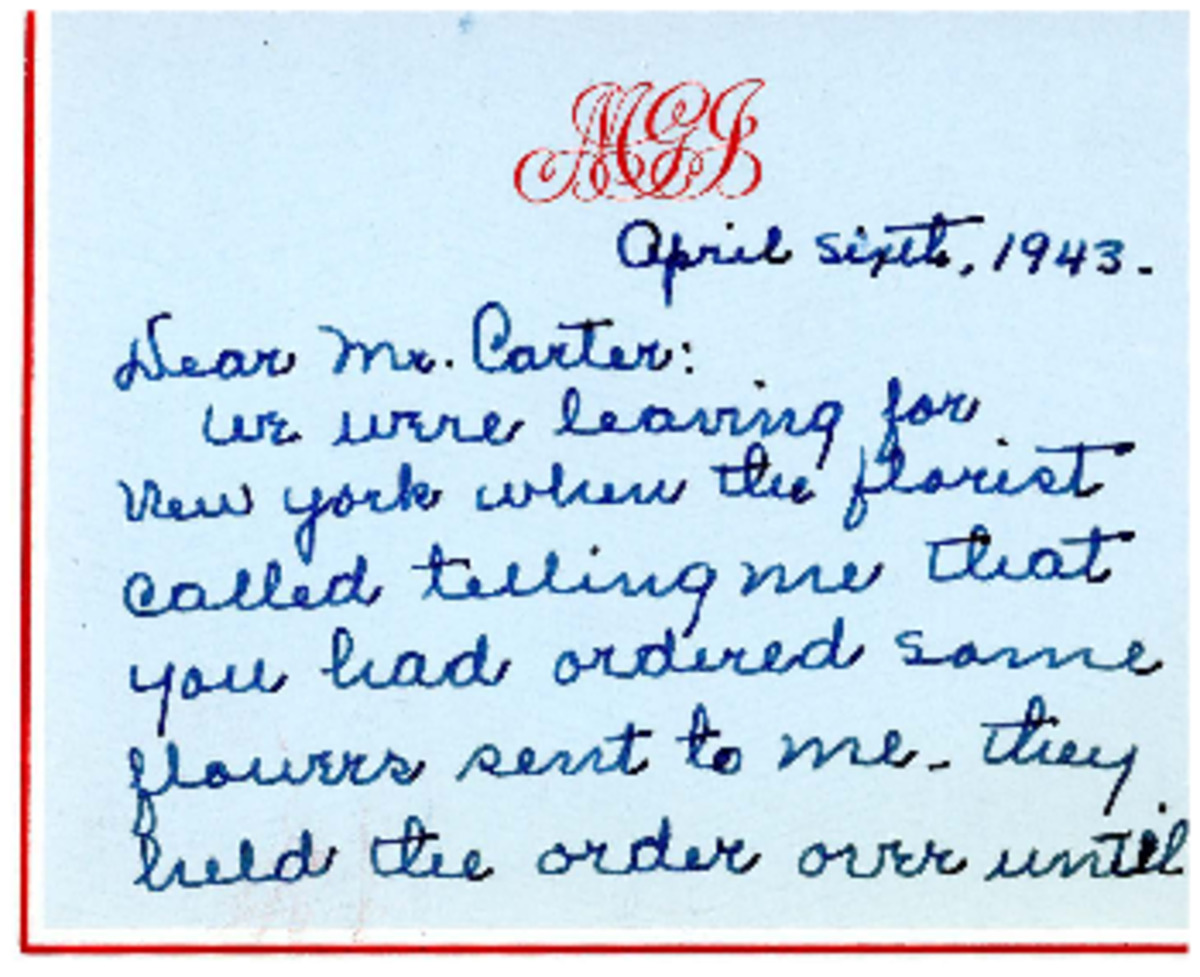 MGJ
April sixth, 1943.
Dear Mr. Carter:
We were leaving for
New York when the florist
called telling me that
you had ordered some
flowers sent to me - they
held the order over until